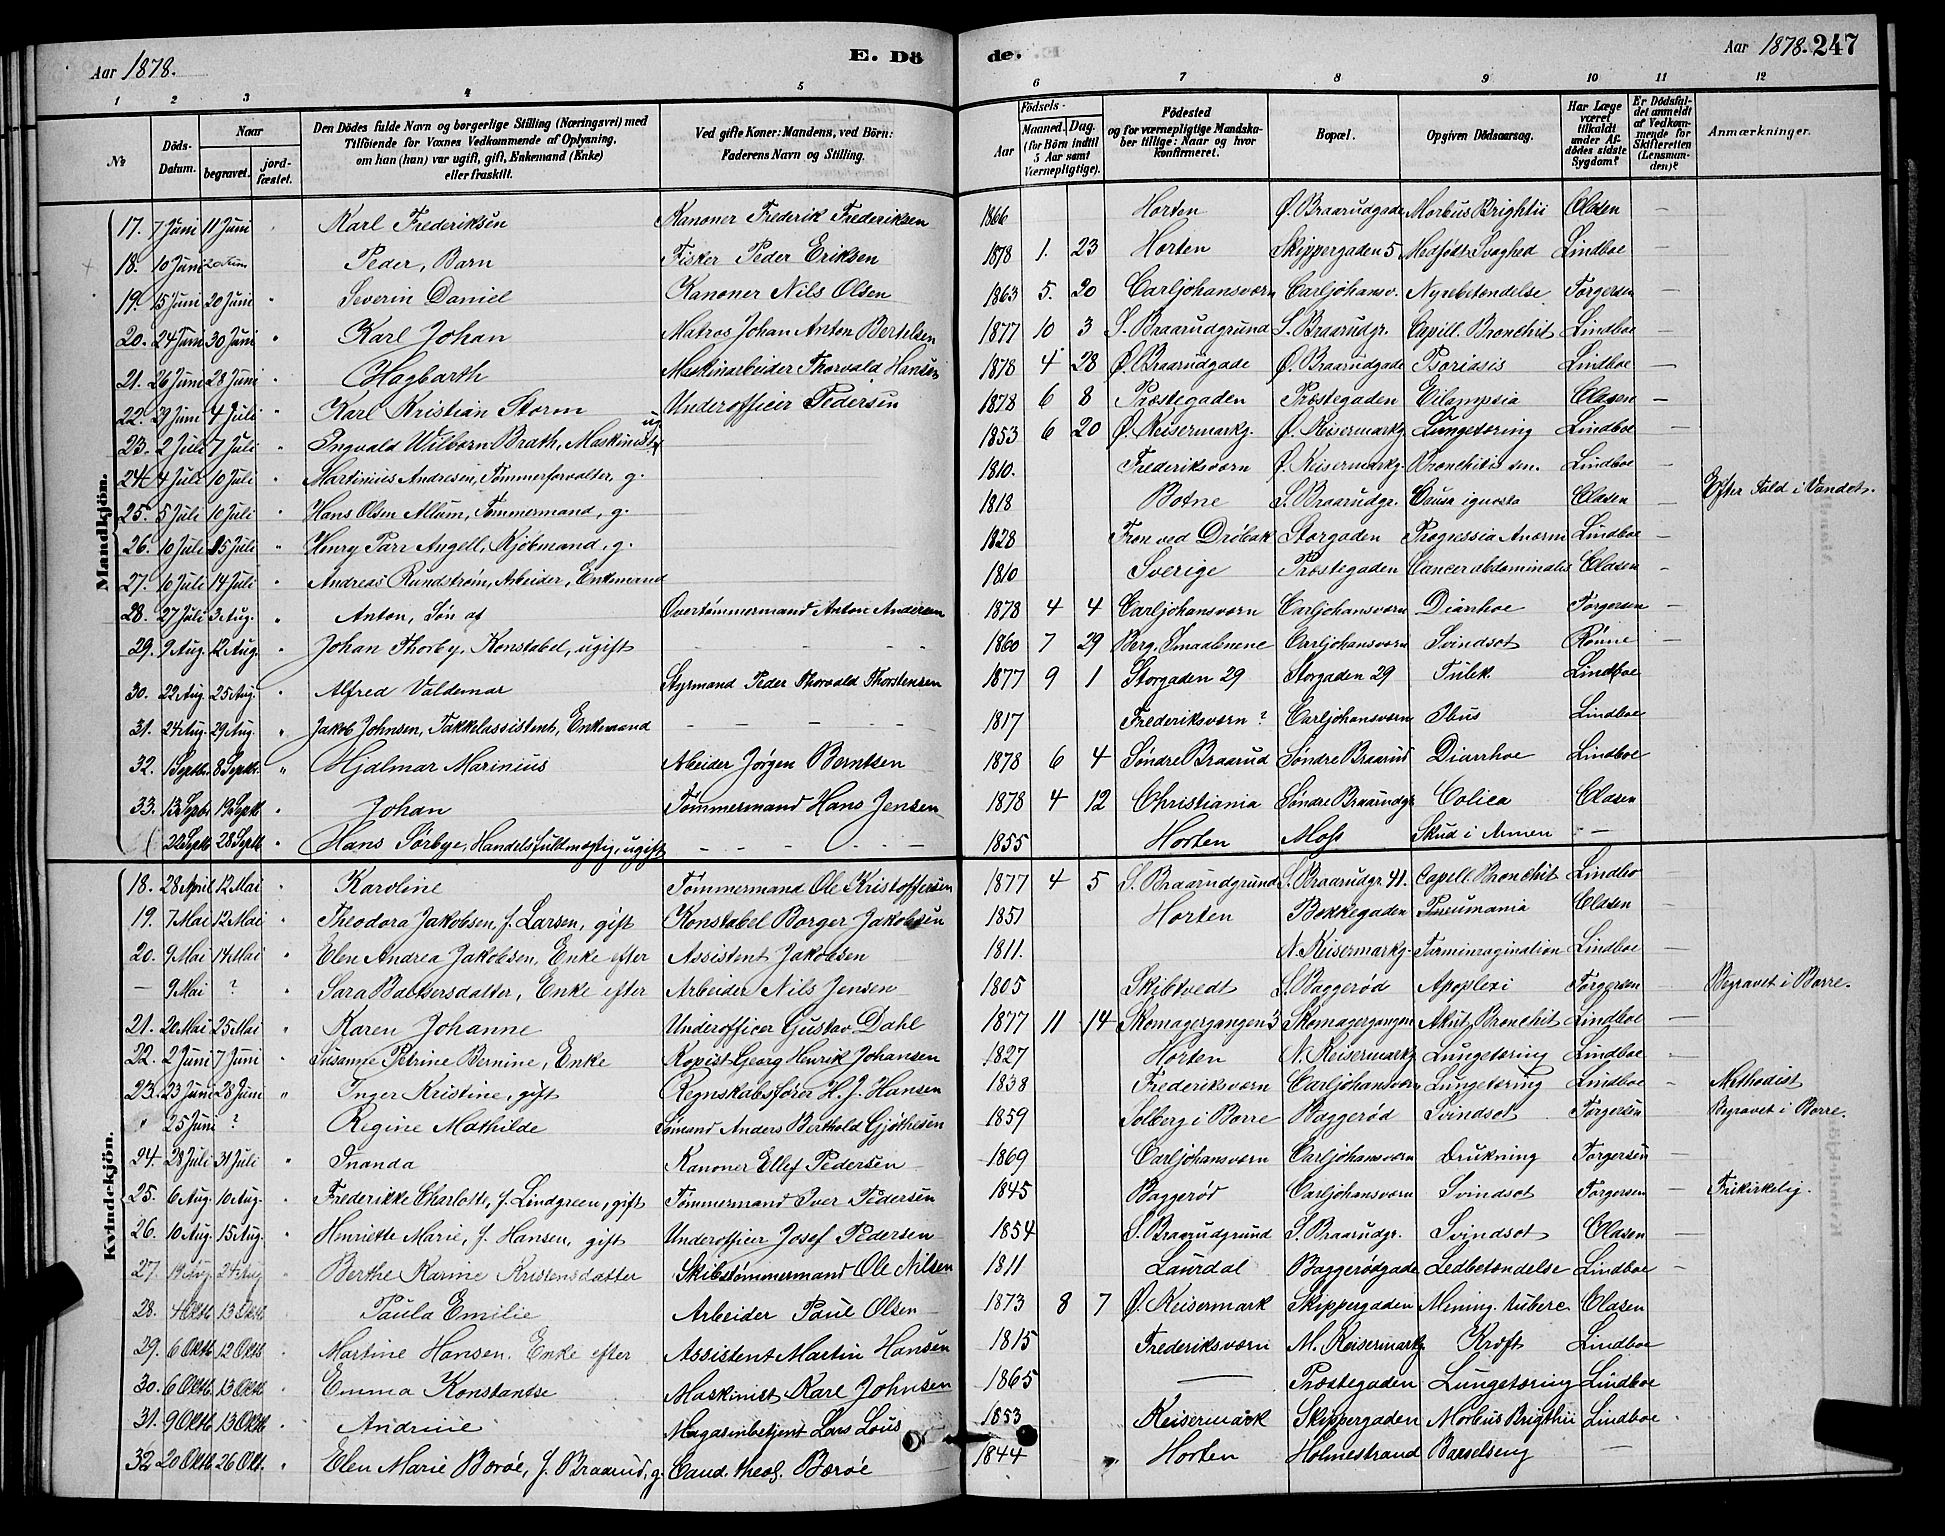 Aar 1878. E. Dö de. Aar 1878. 247
1 2 3 4 5 6 7 8 9 10 11 12
№ Döds-Datum. Naar begravet. jordfæstet. Den Dödes fulde Navn og borgerlige Stilling (Næringsvei) med Tilföiende for Voxnes Vedkommende af Oplysning. om han (hun) var ugift, gift, Enkemand (Enke) eller fraskilt. Ved gifte Koner: Mandens, ved Börn: Faderens Navn og Stilling. Födsels- Aar Maaned. Dag. (for Börn indtil 5 Aar samt Værnepligtige). Födested og for værnepligtige Mandskaber tillige: Naar og hvor konfirmeret. Bopæl. Opgiven Dödsaarsag. Har Læge været tilkaldt under Afdödes sidste Sygdom? Er Dödsfaldet anmeldt af Vedkommende for Skifteretten (Lensmanden)? Anmærkninger.
Mandkjön.
17. 7 Juni 11 Juni " Karl Frederiksen Kanoner Frederik Frederiksen 1866 Horten Ø. Braarudgade Morbus Brightii Clasen —
18. 10 Juni 20 Juni Peder, Barn Fisker Peder Eriksen 1878 1. 23 Horten Skippergaden 5 Medfødt Svaghed Lindboe —
19. 15 Juni 20 Juni " Severin Daniel Kanoner Nils Olsen 1863 5. 20 Carljohansværn Carljohansv. Nyrebetændelse Torgersen —
20. 24 Juni 30 Juni " Karl Johan Matros Johan Anton Bertelsen 1877 10 3 S. Braarudgrund S. Braarudgr. Capill. Bronchit Lindboe —
21. 26 Juni 28 Juni " Hagbarth Maskinarbeider Thorvald Hansen 1878 4 28 Ø. Braarudgade Ø. Braarudgade Psoriasis Lindboe —
22. 29 Juni 4 Juli " Karl Kristian Storm Underofficer Pedersen 1878 6 8 Præstegaden Præstegaden Eclampsia Clasen —
23. 2 Juli 7 Juli " Ingvald Wilborn Brath, Maskinist ug. 1853 6 20 Ø. Keisermarkg. Ø. Keisermarkg Lungetæring Lindboe —
24 4 Juli 10 Juli " Martinius Andresen, Tømmerforvalter, g. 1810. Frederiksværn Ø. Keisermarkg. Bronchitis sen. Lindboe —
25. 5 Juli 10 Juli " Hans Olsen Allum, Tømmermand, g. 1818 Botne S. Braarudgr. Causa ignota Clasen — Efter Fald i Vandet.
26. 10 Juli 15 Juli " Henry Parr Angell, Kjøbmand, g. 1828 Fron ved Drøbak Storgaden Lindboe —
27. 10 Juli 14 Juli " Andreas Rundstrøm, Arbeider, Enkemand 1810 Sverige Præstegaden Cancer abdominalis Clasen —
28. 27 Juli 3 Aug. " Anton, Søn af Overtømmermand Anton Andersen 1878 4 4 Carljohansværn Carljohansværn Diarrhoe Torgersen —
29. 9 Aug. 12 Aug. " Johan Thorby, Konstabel, ugift - - - - 1860 7 29 Berg, Smaalenene Carljohansværn Svindsot Rønne —
30. 22 Aug. 25 Aug. " Alfred Valdemar Styrmand Peder Thorvald Thorstensen 1877 9 1 Storgaden 29 Storgaden 29 Lindboe
31. 24 Aug. 29 Aug. " Jakob Johnsen, Takkelassistent, Enkemand - - - - 1817 Frederiksværn? Carljohansværn Lindboe
32. 1 Septbr. 8 Septbr. " Hjalmar Marinius Arbeider Jørgen Berntsen 1878 6 4 Søndre Braarud Søndre Braarud Diarrhoe Lindboe
33. 13 Septbr 19 Septb " Johan Tømmermand Hans Jensen 1878 4 12 Christiania Søndre Braarudgr Colica Clasen
( 22 Septb 28 Septb " Hans Sörbye, Handelsfuldmægtig, ugift - - - - 1855 Horten Moss Skud i Armen —
Kvindekjön.
18. 28 April 12 Mai " Karoline Tømmermand Ole Kristoffersen 1877 4 5 S. Braarudgrund S. Braarudgr. 41. Capill. Bronchit Lindbo —
19. 7 Mai 12 Mai " Theodora Jakobsen, f. Larsen, gift Konstabel Borger Jakobsen 1851 Horten Bakkegaden Pneumania Clasen —
20. 9 Mai 14 Mai " Elen Andrea Jakobsen, Enke efter Assistent Jakobsen 1811. N. Keisermarkg. Lindboe —
— 9 Mai ? " Sara Baltersdatter, Enke efter Arbeider Nils Jensen 1805 Skibtvedt S. Baggerød Apoplexi Torgersen — Begravet i Borre.
21. 20 Mai 25 Mai " Karen Johanne Underofficer Gustav Dahl 1877 11 14 Skomagergangen 3 Skomagergangen Akut Bronchit Lindboe —
22. 2 Juni 7 Juni " Susanne Petrine Bernine, Enke Kopist Georg Henrik Johansen 1827 Horten N. Keisermarkg Lungetæring Lindboe —
23. 23 Juni 28 Juni " Inger Kristine, gift Regnskabsfører H. J. Hansen 1838 Frederiksværn Carljohansværn Lungetæring Lindboe - Methodist
" 25 Juni ? Regine Mathilde Sømand Anders Berthold Gjøthesen 1859 Solberg i Borre Baggerød Svindsot Torgersen — Begravet i Borre.
24. 28 Juli 31 Juli " Inanda Kanoner Ellef Pedersen 1869 Carljohansværn Carljohansværn Drukning Torgersen —
25. 6 Aug. 10 Aug. " Frederikke Charlotte, f. Lindgreen, gift Tømmermand Iver Pedersen 1845 Baggerød Carljohansværn Svindsot Torgersen — Frikirkelig.
26. 10 Aug. 15 Aug. " Henriette Marie, f. Hansen, gift Underofficer Josef Pedersen 1854 S. Braarudgrund S. Braarudgr. Svindsot Clasen —
27. 19 Aug 24 Aug " Berthe Karine Kristensdatter Skibstømmermand Ole Nilsen 1811 Laurdal Baggerødgade Ledbetændelse Lindboe —
28. 4 Oktb 13 Oktb " Paula Emilie Arbeider Paul Olsen 1873 8 7 Ø. Keisermark Skippergaden Mening. tuberc Clasen —
29. 6 Oktb 12 Oktb " Martine Hansen, Enke efter Assistent Martin Hansen 1815 Frederiksværn M. Keisermarkg Kræft Lindboe
30. 6 Oktb. 13 Oktb " Emma Konstantse Maskinist Karl Johnsen 1865 — Præstegaden Lungetæring Lindboe
31. 9 Oktb 13 Oktb " Andrine Magasinbetjent Lars Lous 1853 Keisermark Skippergaden Morbus Brigthii Lindboe
32 20 Oktb 26 Okt. " Elen Marie Borøe, f. Braarud, g. Cand. theol. Borøe 1844 Horten Holmestrand Barselseng —